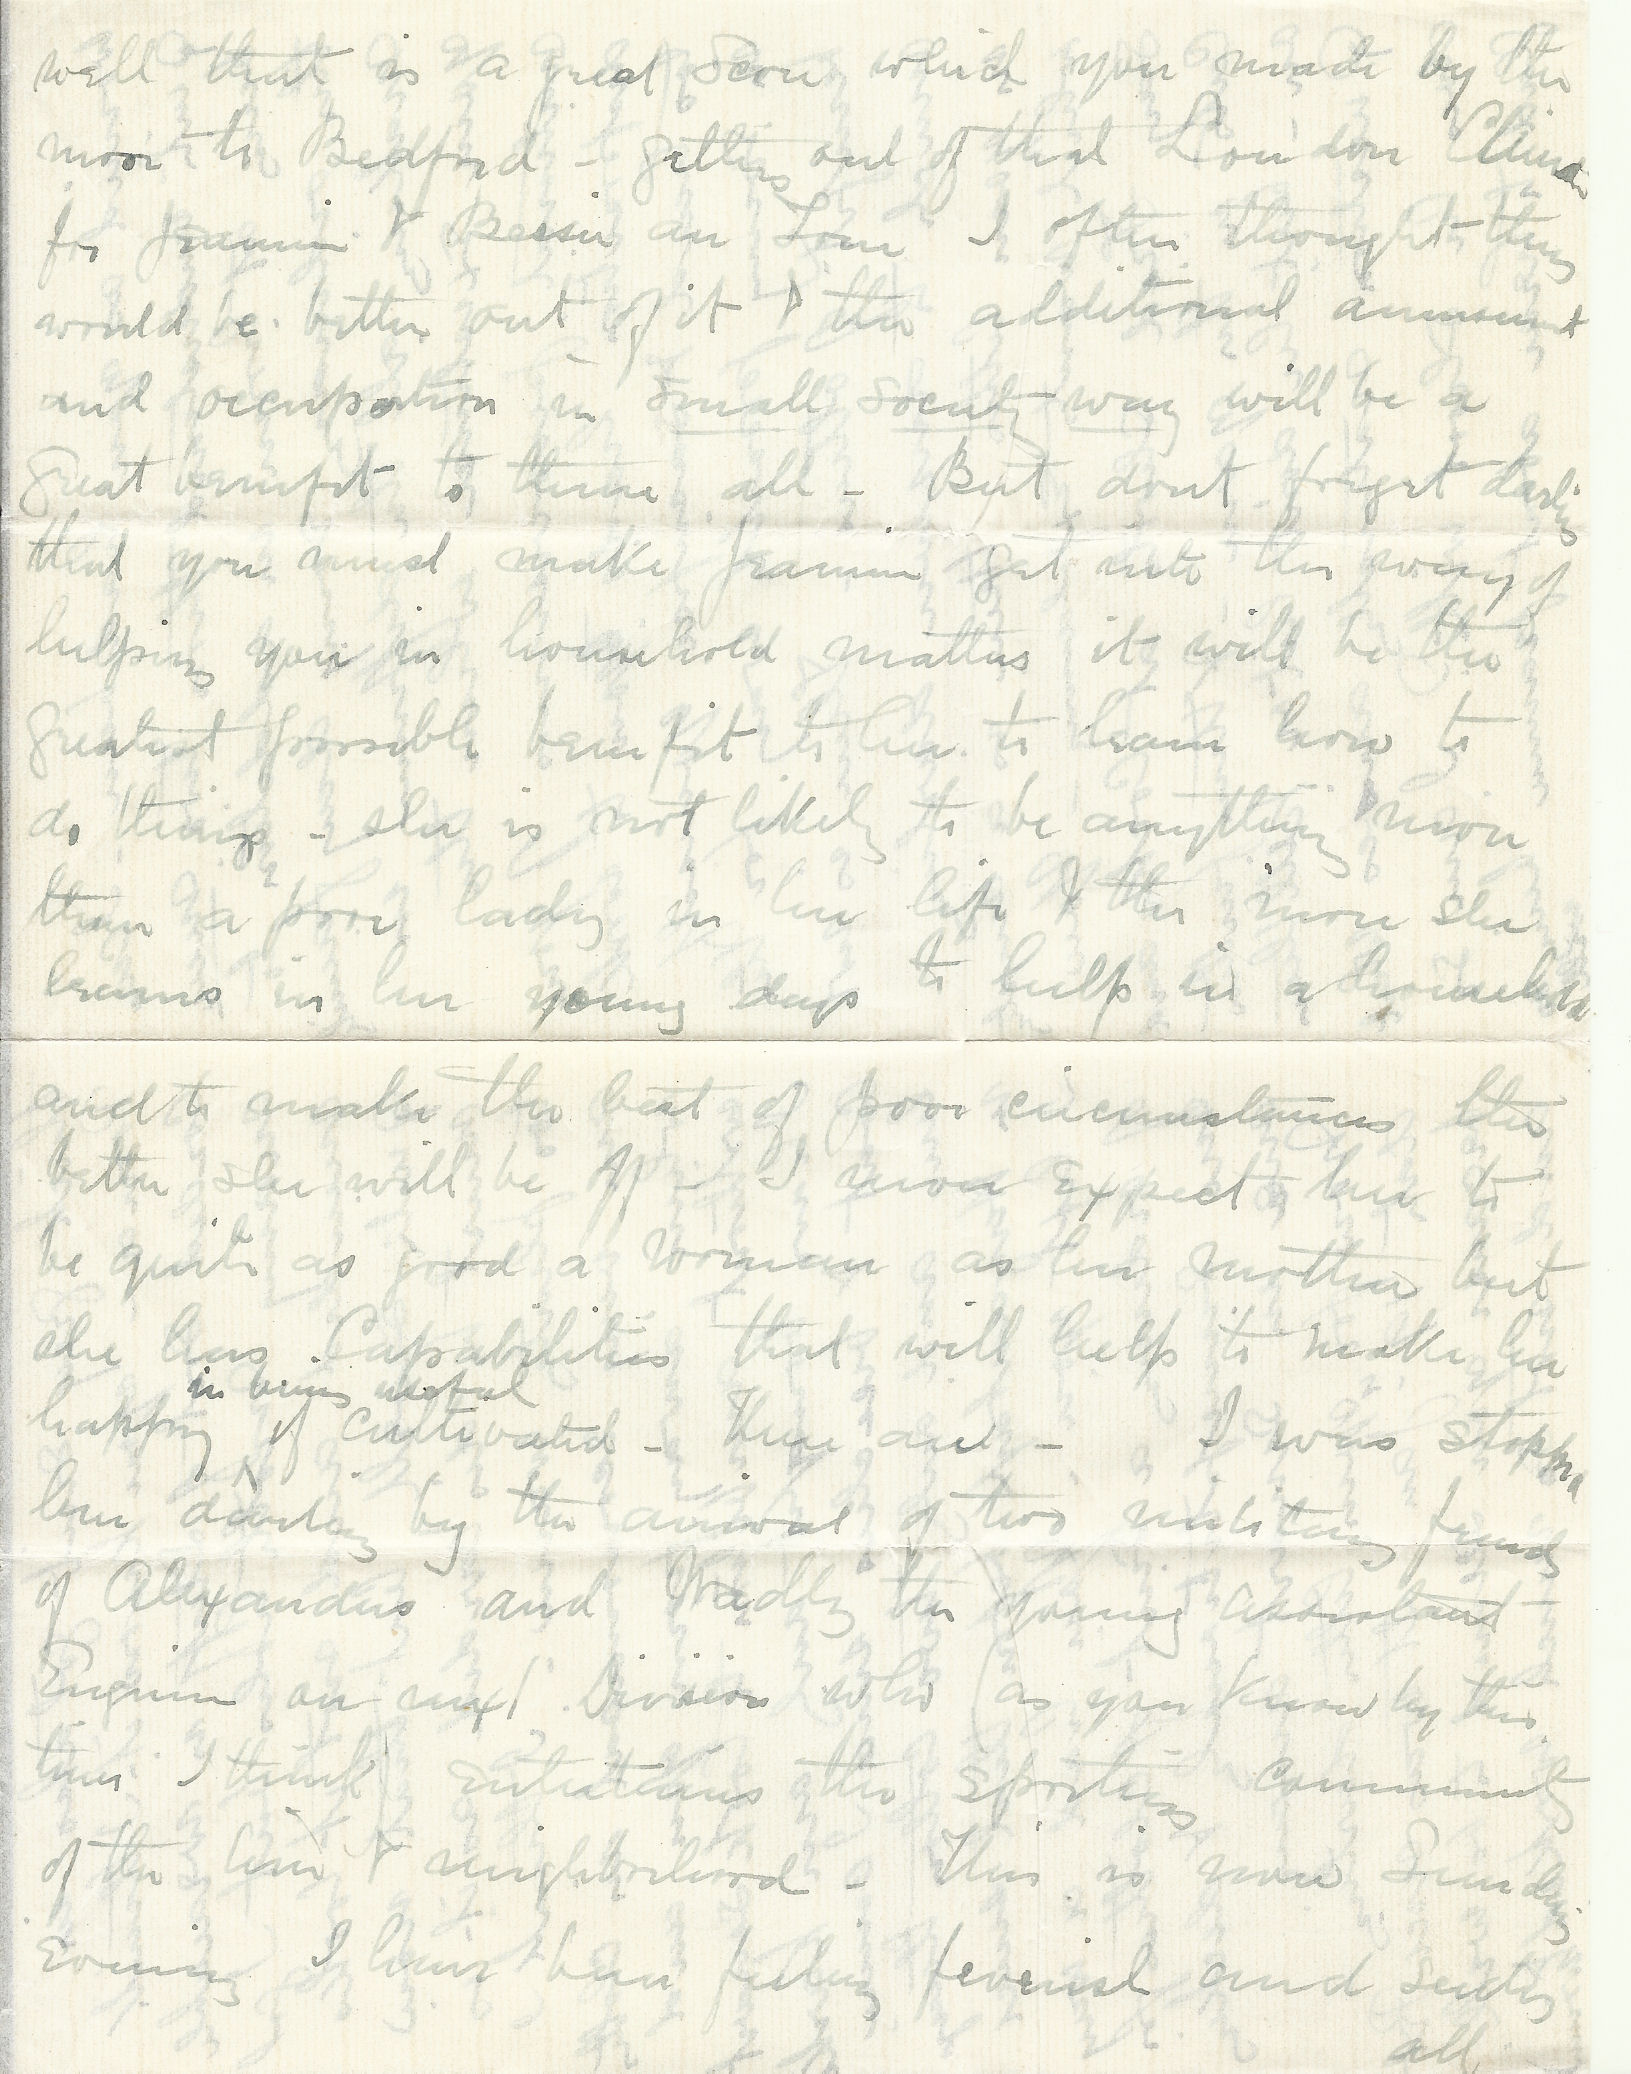 well that is a great score which you made by the
move to Bedford - getting out of that London Climate
for Jeannie & Bessie an Lou I often thought they
would be better out of it & the additional amusement
and occupation in small society way will be a
great benefit to them all - But dont forget darling
that you must make Jeannie get into the way of
helping you in household matters it will be the
greatest possible benefit to her to learn how to
do things - she is not likely to be anything more
than a poor lady in her life & the more she
learns in her young days to help in a household
and to make the best of poor circumstances the
better she will be off - I never expect her to
be quite as good a woman as her mother but
she has Capabilities that will help to make her
happy in being useful if cultivated - There are - I was stopped
here darling by the arrival of two military friends
of Alexanders and the young assistant
Engineer on next Division who (as you know by this
time I think) entertains the sporting community
of the line & neighborhood - This is now Sunday
Evening I have been feeling feverish and seedy
all